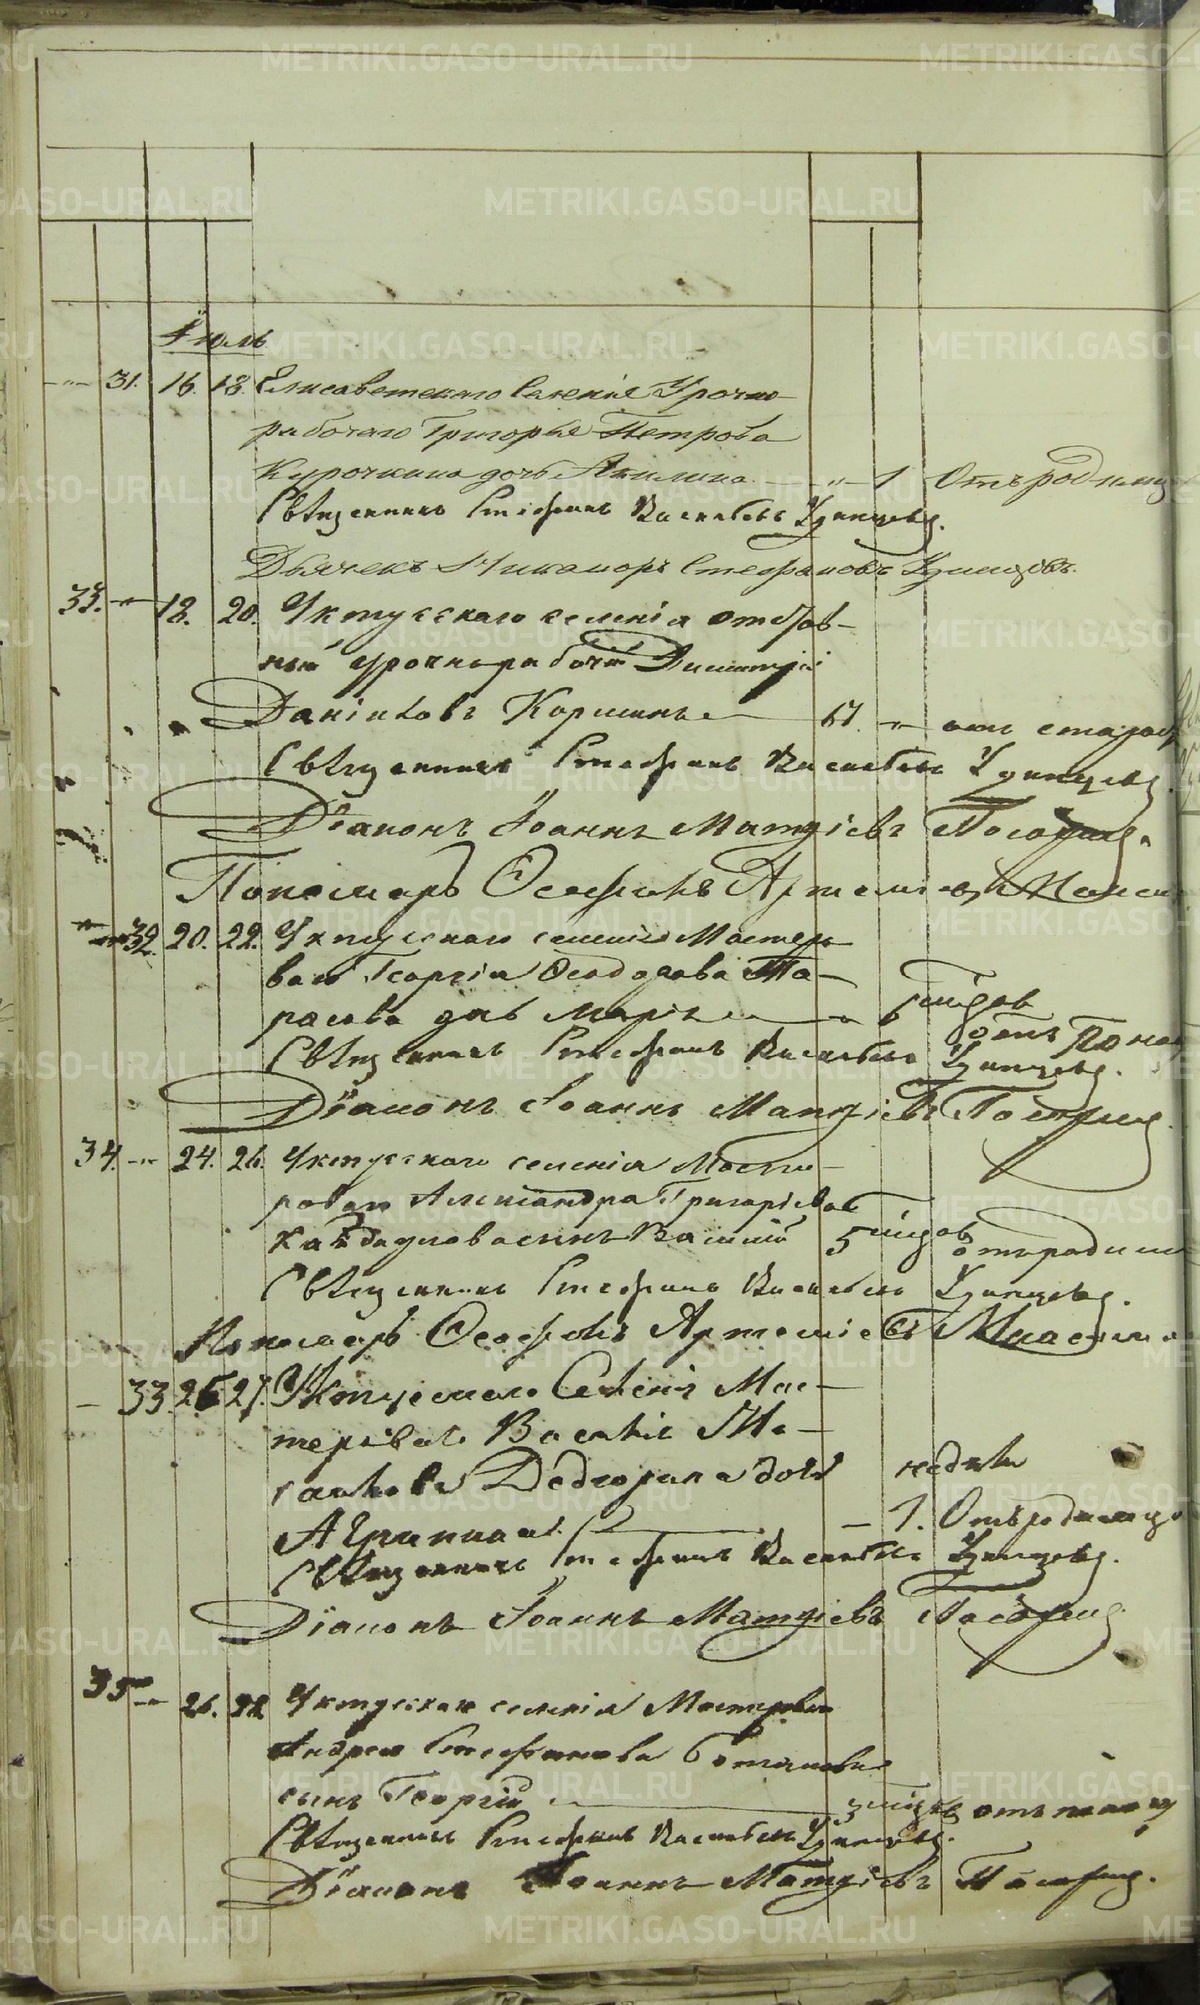 Іюль
31. 16. 18. Елисаветскаго Селенія Урочно
рабочаго Григорья Петрова
Курочкина дочь Акилина — " — 1 Отъ родимца
Священникъ Стефанъ Васильевъ Удинцевъ.
Дьячекъ Никаноръ Стефановъ Удинцовъ.
33. — " 18. 20. Уктусскаго селенія отстав-
ный урочнорабочій Димитрій
Даниловъ Коршинъ — 67. " отъ старос
Священникъ Стефанъ Васильевъ Удинцевъ.
Діаконъ Іоаннъ Матфіевъ
Пономарь Осафъ Артеміевъ
32. 20. 22. Уктусскаго селенія Мастеро
ваго Георгія Феодорова Та-
расова дочь Марія — " 6 мѣсяцов
отъ Понос
Священникъ Стефанъ Васильевъ Удинцевъ.
Діаконъ Іоаннъ Матфіевъ
34. — " 24. 26. Уктусскаго селенія Масте-
роваго Александра Григорьева
сынъ Василій 5 мѣсяцов
отъ родимца
Священникъ Стефанъ Васильевъ Удинцевъ.
Пономарь Артеміевъ
— 33. 25 27. Уктускаго Селенія Мас-
тероваго Василія
дочь недѣли
Агрипина — 1. Отъ родимца
Священникъ Стефанъ Васильевъ Удинцевъ.
Діаконъ Іоаннъ Матфіевъ
35 — " 26. 28 Уктусскаго селенія Мастероваго
Андрея Стефанова
сынъ Георгій — 3 мѣсяцов отъ
Священникъ Стефанъ Васильевъ Удинцевъ.
Діаконъ Іоаннъ Матфіевъ
METRIKI.GASO-URAL.RU